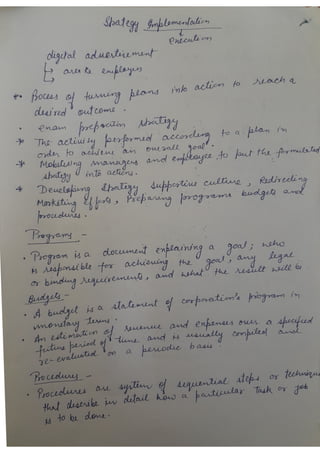 Strategy Implementation
&
Execution
digital advertisement
areste employees
* Process of turning plans into action to reach a
desired outcome.
• exam prepartion strategy
* The activity performed according to a plan in
order to achieve an overall goal.
* Mobilising managers and employee to put the formulated
strategy into action.
* Developing Strategy Supportive culture, Redirecting
Marketing Efforts, Preparing programs budgets and
procedures.
Programs -
• Program is a document explaining a goal; who
is responsible for achieving the goal, any legal
or binding requirements, and what the result will be
Budgets -
• A budget is a statement of corporation's program in
monetary terms.
• An estimation of revenue and expenses over a specified
future period of time and is usually compiled and
re-evaluated on a periodic basis.
Procedures -
• Procedures are system of sequential steps or technique
that describe in detail how a particular task or job
is to be done.